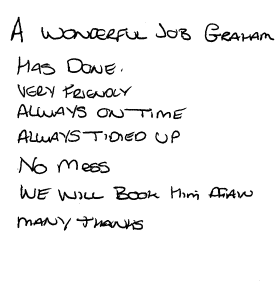 A WONDERFUL JOB GRAHAM
HAS DONE.
VERY FRIENDLY
ALWAYS ON TIME
ALWAYS TIDIED UP
NO MESS
WE WILL BOOK HIM AGAIN
MANY THANKS